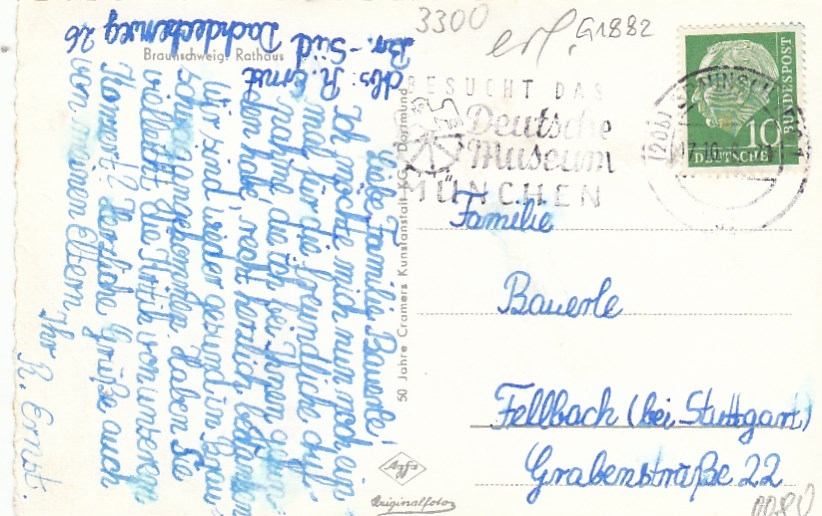 3300
erl. G1882
Braunschweig: Rathaus
Abs: R. Ernst
Br.-Süd Dachdeckerweg 26
Liebe Familie Bauerle!
Ich möchte mich nun noch ein-
mal für die freundliche Auf-
nahme die ich bei Ihnen gefun-
den habe, recht herzlich bedanken
Wir sind wieder gesund in Braun-
schweig angekommen. Haben Sie
vielleicht die Karte von unserem
Herzliche Grüße auch
von meinen Eltern
Ihr
R. Ernst.
50 Jahre Cramers Kunstanstalt KG. Dortmund
Agfa
Originalfoto
BESUCHT DAS
Deutsche
Museum
MÜNCHEN
(20b) BRAUNSCHWEIG
17.10.
10
DEUTSCHE
BUNDESPOST
Familie
Bauerle
Fellbach (bei Stuttgart)
Grabenstraße 22